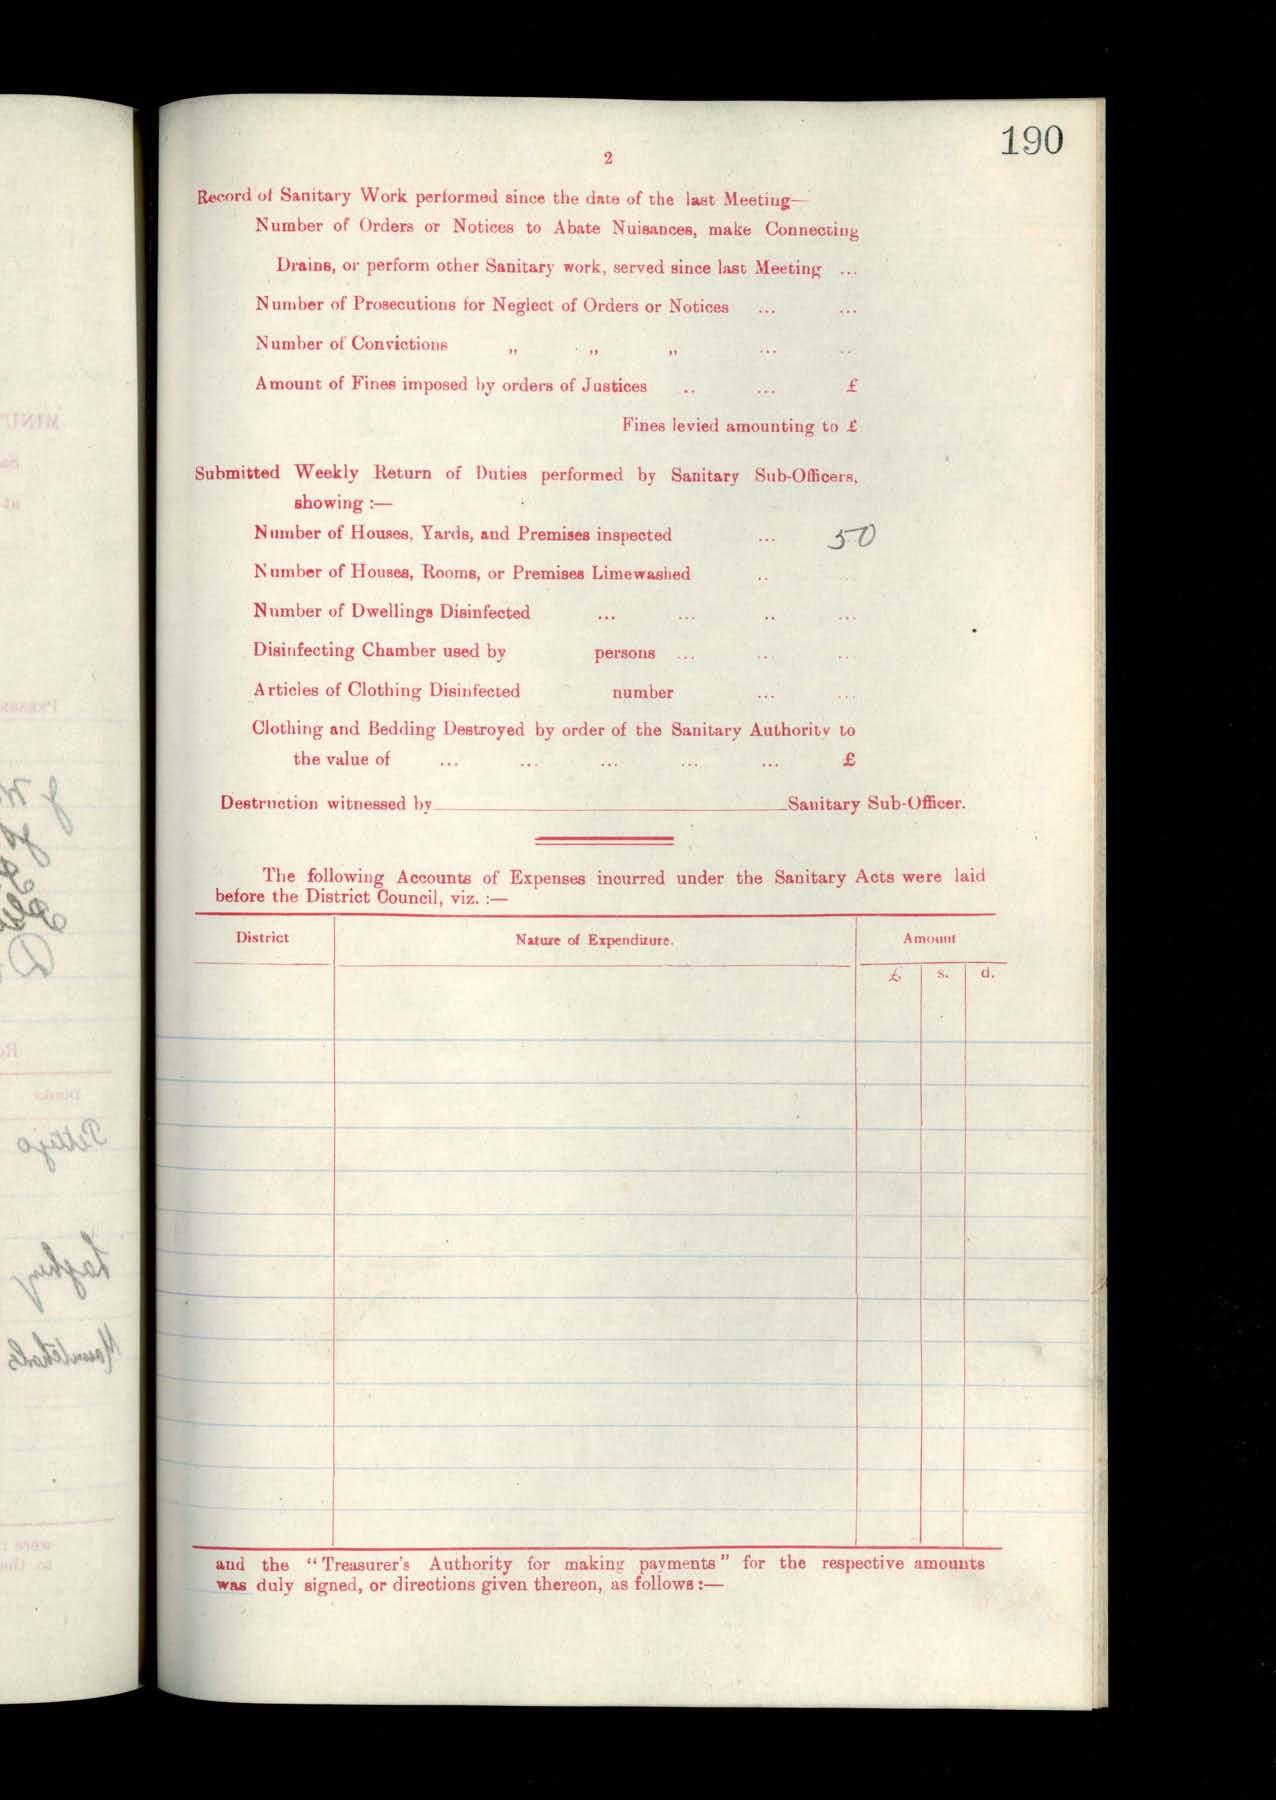 190
2
Record of Sanitary Work performed since the date of the last Meeting—
Number of Orders or Notices to Abate Nuisances, make Connecting
Drains, or perform other Sanitary work, served since last Meeting ...
Number of Prosecutions for Neglect of Orders or Notices ... ...
Number of Convictions „ „ „ ... ..
Amount of Fines imposed by orders of Justices .. ... £
Fines levied amounting to £
Submitted Weekly Return of Duties performed by Sanitary Sub-Officers,
showing :—
Number of Houses, Yards, and Premises inspected ... 50
Number of Houses, Rooms, or Premises Limewashed ..
Number of Dwellings Disinfected ... ... .. ...
Disinfecting Chamber used by persons ... ... ..
Articles of Clothing Disinfected number ... ...
Clothing and Bedding Destroyed by order of the Sanitary Authority to
the value of ... ... ... ... ... £
Destruction witnessed by Sanitary Sub-Officer.
The following Accounts of Expenses incurred under the Sanitary Acts were laid
before the District Council, viz. :—
District Nature of Expenditure. Amount
£ s. d.
and the "Treasurer's Authority for making payments" for the respective amounts
was duly signed, or directions given thereon, as follows :—